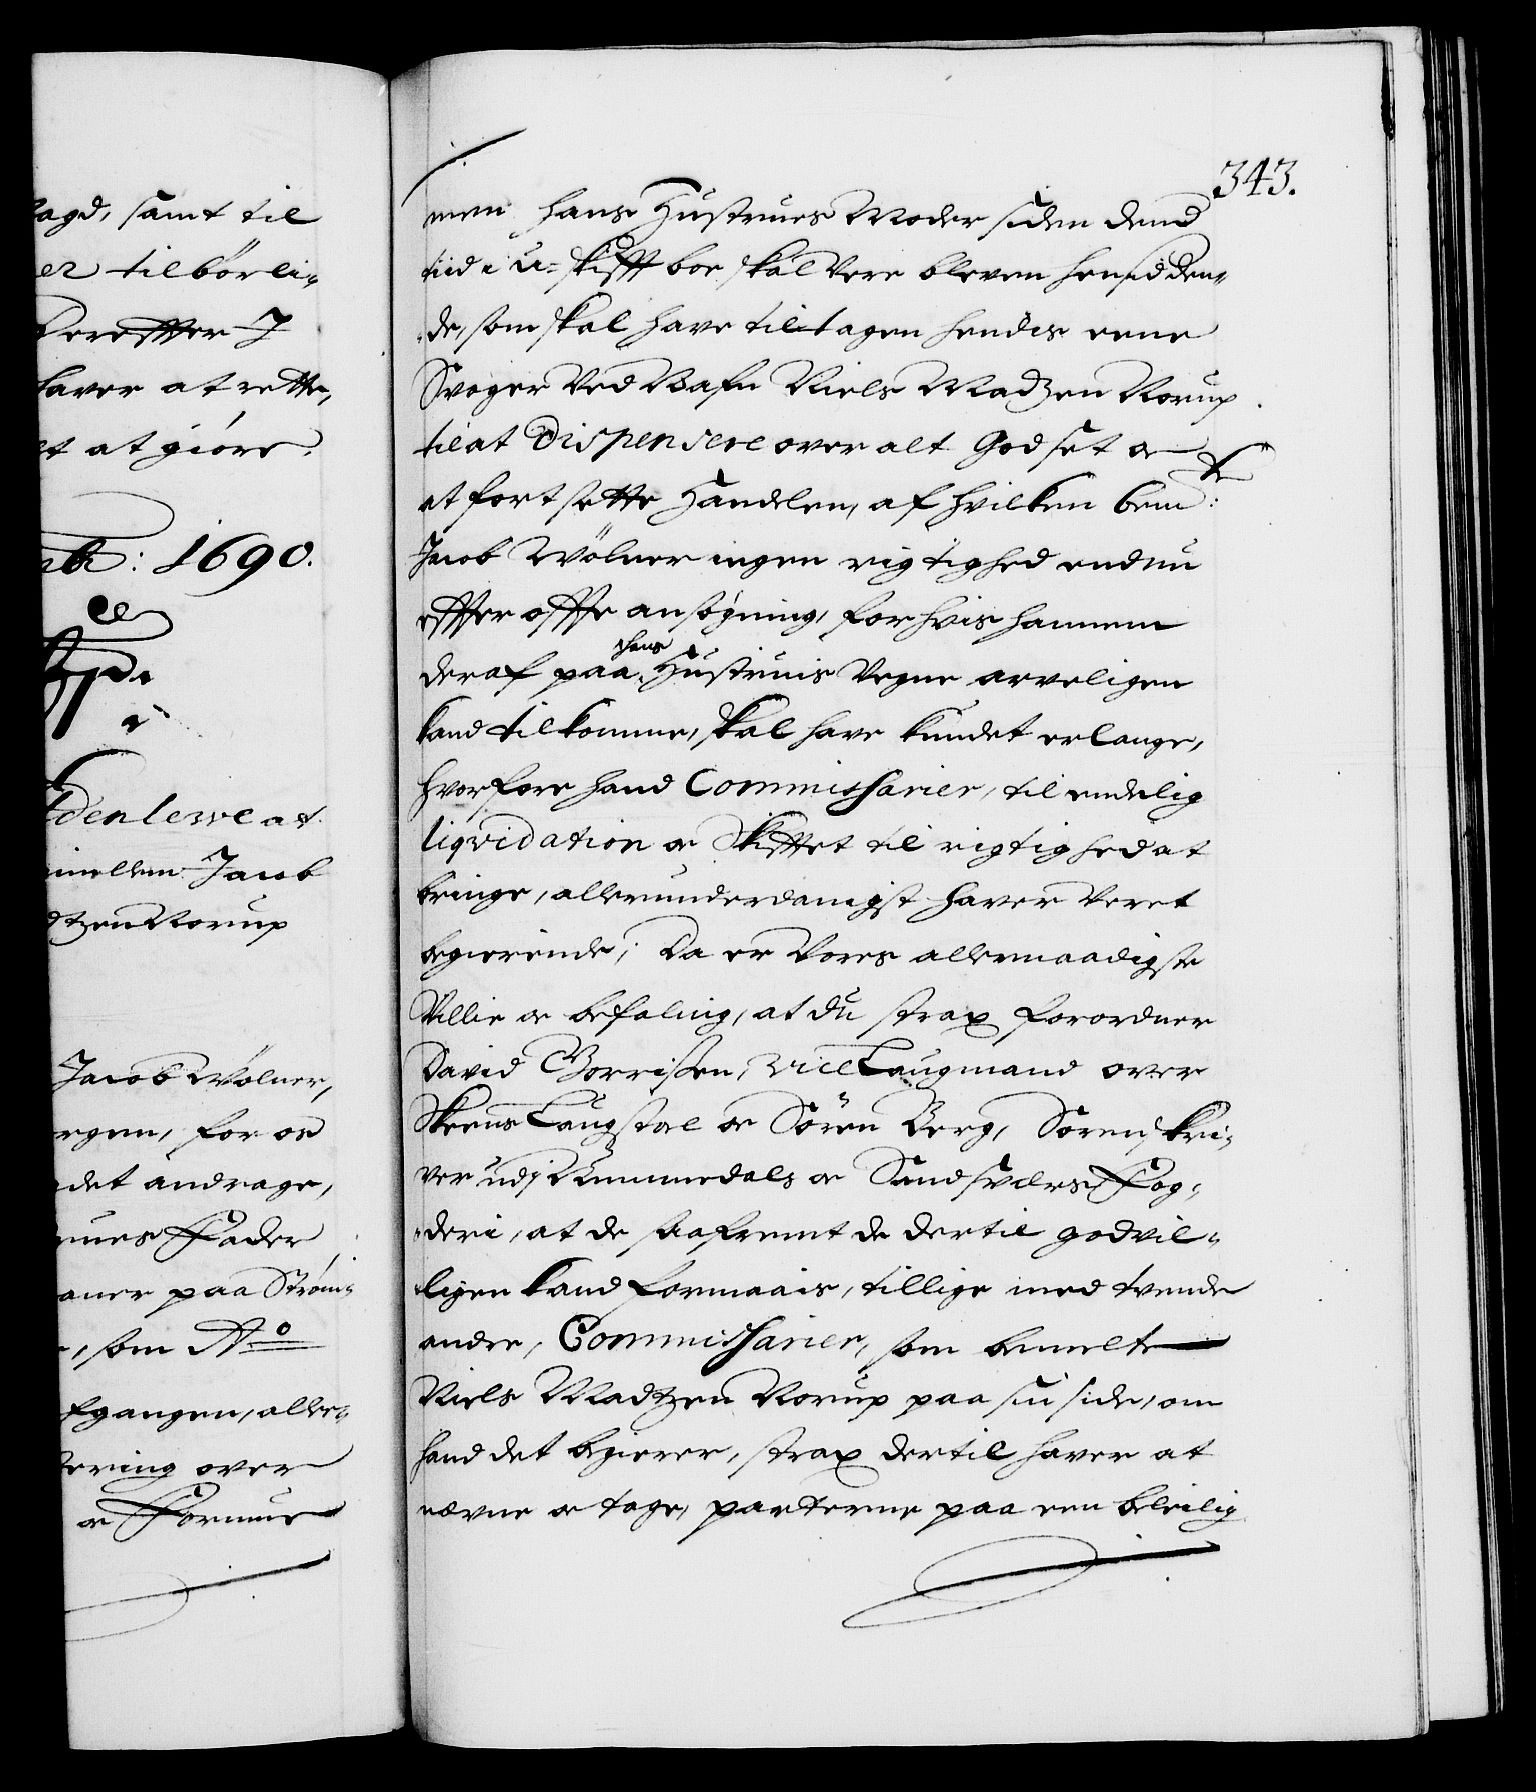 lagd, samt til
er tilbörli-
Derefter I
haver at rette,
et at giöre.
mb: 1690.
Edenlewe at
imellem Jacob
dtzen Norup
Jacob Wölner,
ergen, for os
det andrage,
rues Fader
aner paa Ström-
, som Ao
fgangen, aller-
tering over
oc Formue
343.
men hans Hustrues Moder siden dend
tiid i U-skifft boe skal vere bleven hensidden-
de, som skal have til tagen hendis eene
Svoger ved Nafn Niels Madzen Norup
til at Dispensere over alt Godset oc
at fortsette Handelen, af hvilken bemte:
Jacob Wölner ingen rigtighed endnu
effter offte ansögning, for hvis hannem
deraf paa hans Hustruis Vegne arveligen
kand tilkomme, skal have kundet erlange,
hvorfore hand Commissarier, til endelig
liqvidation oc Skifftet til rigtighed at
bringe, allerunderdanigst haver veret
begierende; Da er Vores allernaadigste
Villie oc befaling, at du strax forordner
David Gorrissen, Vice Laugmand over
Skeens Laugstoel oc Sören Berg, Sorenskri-
ver udj Nummedals oc Sandsværs Fog-
deri, at de saafremt de dertil godvil-
ligen kand formaais, tillige med tvende
andre, Commissarier, som bemelte
Niels Madtzen Norup paa sin side, om
hand det begierer, strax dertil haver at
nævne oc tage, parterne paa een beleilig